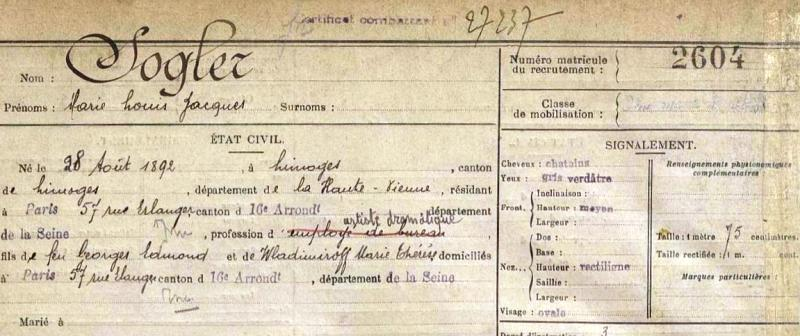 Certificat combattant
27237
Nom : Sogler
Prénoms : Marie Louis Jacques Surnoms :
Numéro matricule du recrutement : 2604
Classe de mobilisation :
ÉTAT CIVIL.
Né le 28 Août 1892 , à Limoges , canton
de Limoges , département de la Haute-Vienne , résidant
à Paris 57 rue Erlanger canton d 16e Arrondt département
artiste dramatique
de la Seine , profession d' employé de bureau
fils de feu Georges Edmond et de Wladimiroff Marie Thérèse domiciliés
à Paris 57 rue Erlanger canton d 16e Arrondt , département de la Seine
Marié à
SIGNALEMENT.
Cheveux : chatains
Yeux : gris verdâtre
Front. Inclinaison :
Hauteur : moyen
Largeur :
Nez... Dos :
Base :
Hauteur : rectiligne
Saillie :
Largeur :
Visage : ovale
Renseignements physionomiques
complémentaires
Taille : 1 mètre 75 centimètres.
Taille rectifiée : 1 m. cent.
Marques particulières :
3